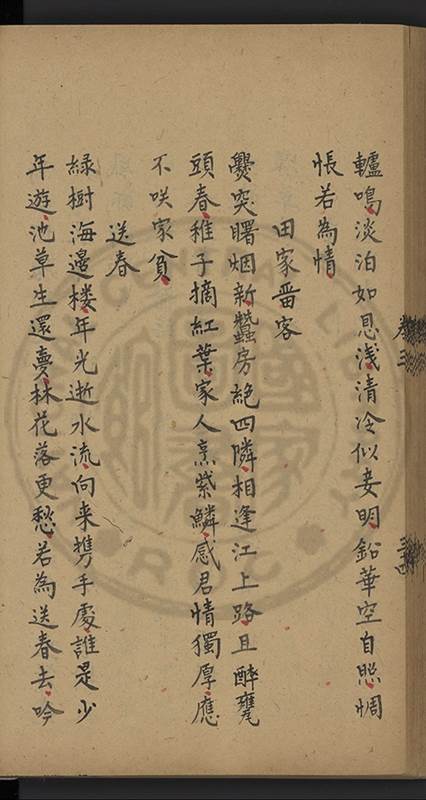 轤鳴淡泊如恩浅清冷似妾明鉛華空自照惆
悵若為情
田家畱客
爨突曙烟新蠶房絶四隣相逢江上路且醉甕
頭春稚子摘紅葉家人烹紫鱗感君情獨厚應
不咲家貧
送春
緑樹海邉楼年光逝水流向来携手處誰是少
年遊池草生還夢林花落更愁若為送春去吟
卷三